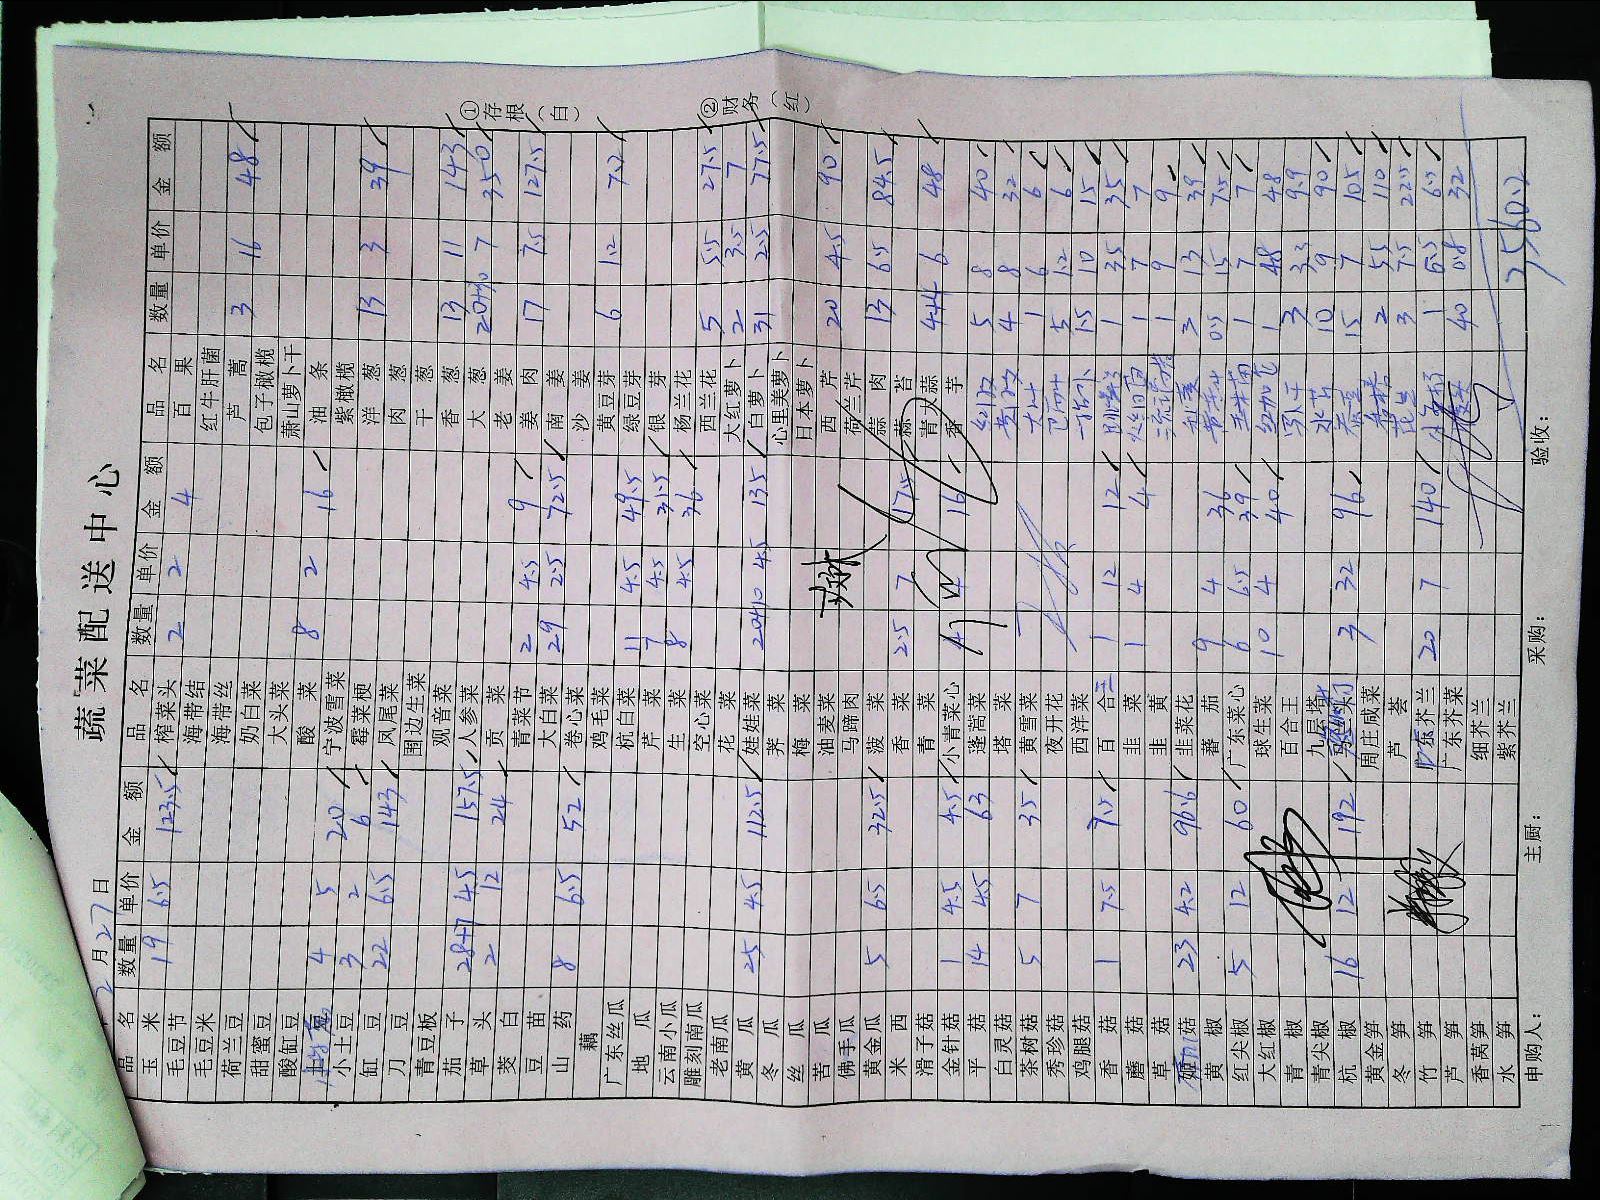 蔬菜配送中心
2月27日
品名 数量 单价 金额 品名 数量 单价 金额 品名 数量 单价 金额
玉米 19 6.5 123.5 榨菜头 2 2 4 百果
毛豆节 海带结 红牛肝菌
毛豆米 海带丝 芦蒿 3 16 48
荷兰豆 奶白菜 包子橄榄
甜蜜豆 大头菜 萧山萝卜干
酸缸豆 酸菜 8 2 16 油条
4 5 20 宁波雪菜 紫橄榄
小土豆 3 2 6 霉菜梗 洋葱 13 3 39
缸豆 22 6.5 143 凤尾菜 肉葱
刀豆 围边生菜 干葱
青豆板 观音菜 香葱 13 11 143
茄子 28+7 4.5 157.5 人参菜 大葱 20+30 7 350
草头 2 12 24 贡菜 老姜
茭白 青菜节 2 4.5 9 姜肉 17 7.5 127.5
豆苗 大白菜 29 2.5 72.5 南姜
山药 8 6.5 52 卷心菜 沙姜
藕 鸡毛菜 黄豆芽 6 1.2 7.2
广东丝瓜 杭白菜 11 4.5 49.5 绿豆芽
地瓜 芹菜 7 4.5 31.5 银芽
云南小瓜 生菜 8 4.5 36 杨兰花
雕刻南瓜 空心菜 西兰花 5 5.5 27.5
老南瓜 花菜 大红萝卜 2 3.5 7
黄瓜 25 4.5 112.5 娃娃菜 20+10 4.5 135 白萝卜 31 2.5 77.5
冬瓜 荠菜 心里美萝卜
丝瓜 梅菜 日本萝卜
苦瓜 油麦菜 西芹 20 4.5 90
佛手瓜 马蹄肉 荷兰芹
黄金瓜 5 6.5 32.5 菠菜 蒜肉 13 6.5 84.5
米西 香菜 2.5 7 17.5 蒜苔
滑子菇 青菜 青大蒜 4+4 6 48
金针菇 1 4.5 4.5 小青菜心 4 4 16 香芋
平菇 14 4.5 63 蓬蒿菜 5 8 40
白灵菇 塔菜 4 8 32
茶树菇 5 7 35 黄雪菜 1 6 6
秀珍菇 夜开花 5 1.2 6
鸡腿菇 西洋菜 1.5 10 15
香菇 1 7.5 7.5 百合 1 12 12 1 35 35
蘑菇 韭菜 1 4 4 1 7 7
草菇 韭黄 1 9 9
菇 23 4.2 96.6 韭菜花 3 13 39
黄椒 蕃茄 9 4 36 0.5 15 7.5
红尖椒 5 12 60 广东菜心 6 6.5 39 1 7 7
大红椒 球生菜 10 4 40 1 48 48
青椒 百合王 3 3.3 9.9
青尖椒 九层塔 水芹 10 9 90
杭椒 16 12 192 3 32 96 15 7 105
黄金笋 周庄咸菜 2 55 110
冬笋 芦荟 3 7.5 22.5
竹笋 广东芥兰 20 7 140 1 6.5 6.5
芦笋 广东芥菜 40 0.8 32
香莴笋 细芥兰
水笋 紫芥兰 3560.2
申购人： 主厨： 采购： 验收：
①存根（白）
②财务（红）